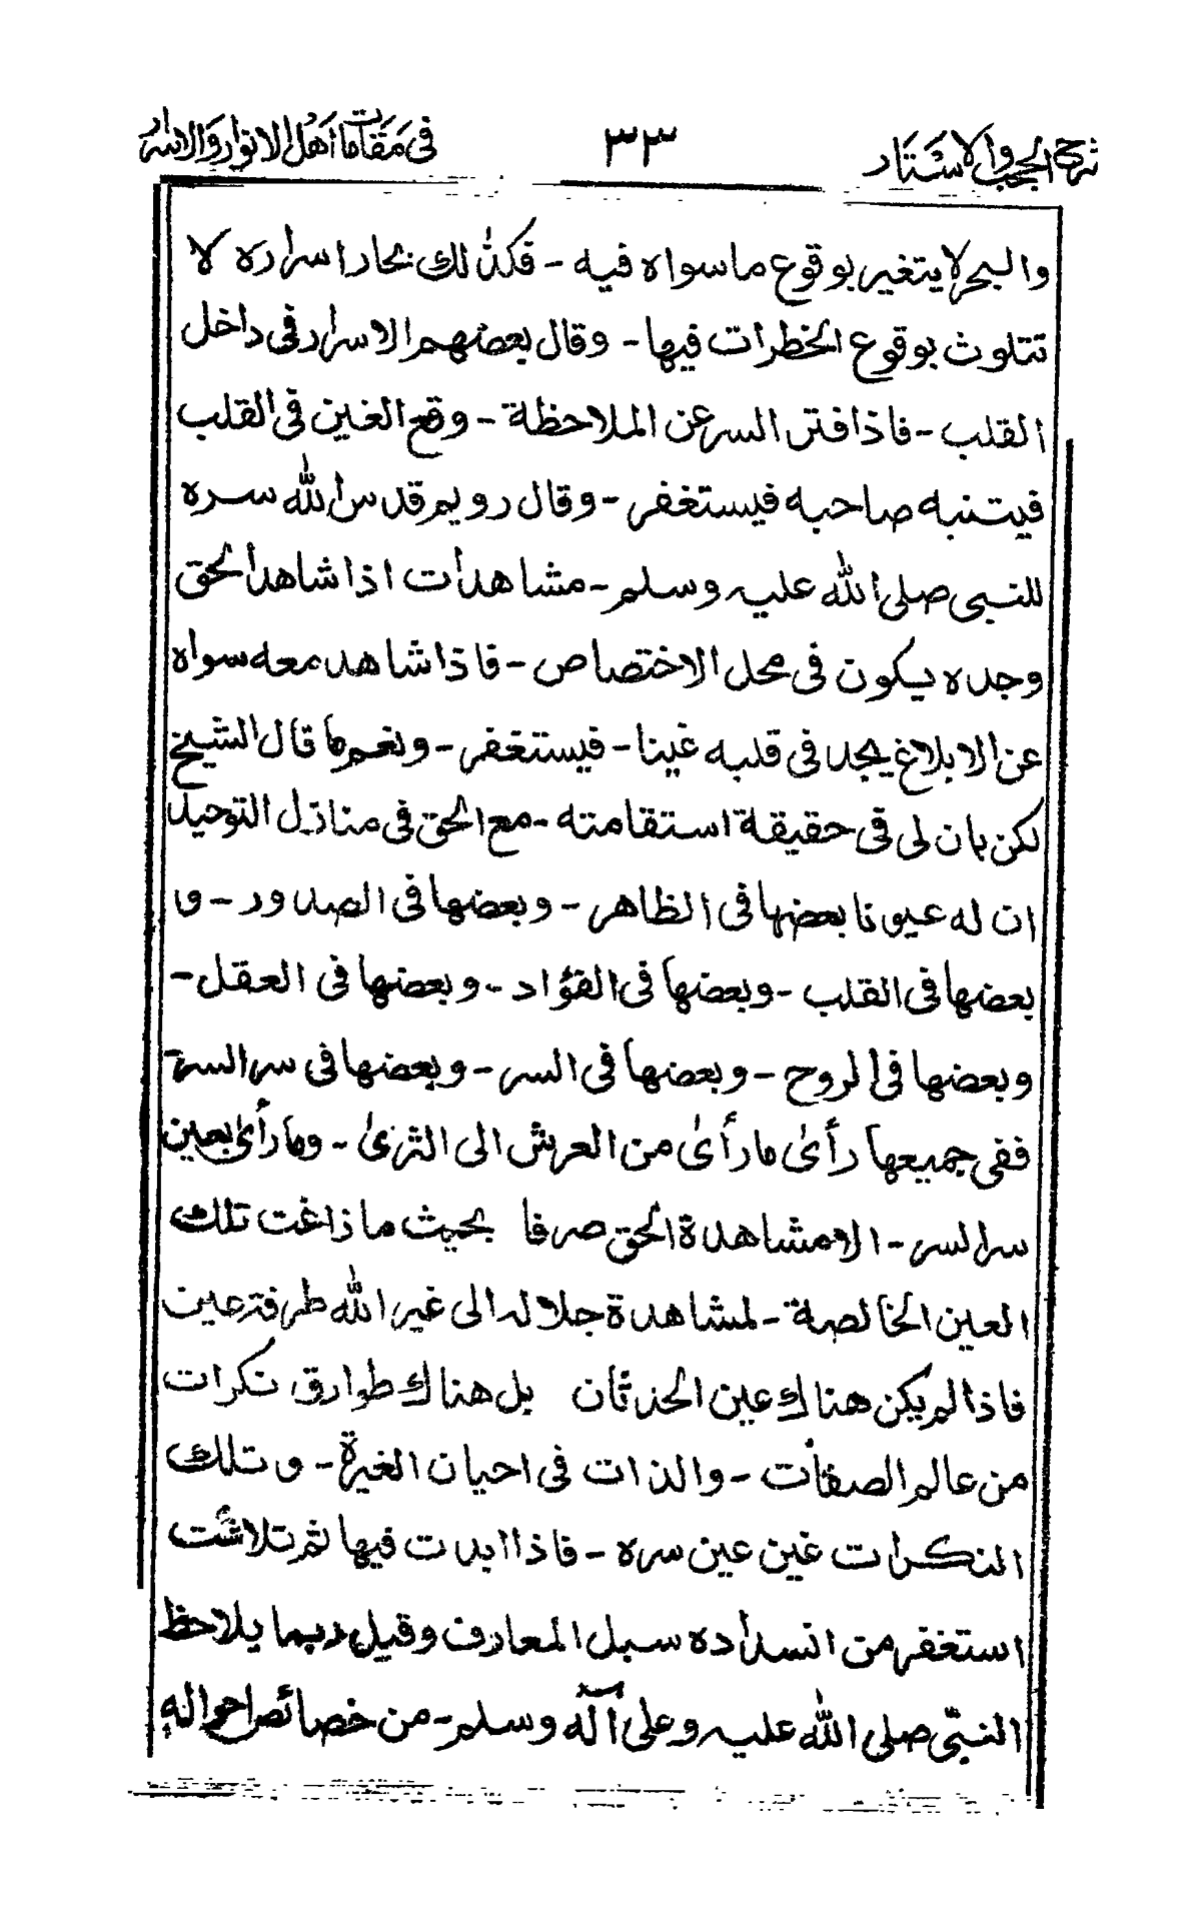 شرح الحجب والاستار ٣٣ في مقامات اهل الانوار والاسرار
والبحر لا يتغير بوقوع ما سواه فيه - فكذلك بحار اسراره لا
تتلوث بوقوع الخطرات فيها - وقال بعضهم الاسرار في داخل
القلب - فاذا فتر السر عن الملاحظة - وقع الغين في القلب
فيتنبه صاحبه فيستغفر - وقال رويم قدس الله سره
للنبي صلى الله عليه وسلم - مشاهدات اذا شاهد الحق
وجده يكون في محل الاختصاص - فاذا شاهد معه سواه
عن الابلاغ يجد في قلبه غينا - فيستغفر - ونعم ما قال الشيخ
لكن بان لى في حقيقة استقامته - مع الحق في منازل التوحيد
ان له عيونا بعضها في الظاهر - وبعضها في الصدور - و
بعضها في القلب - وبعضها في الفؤاد - وبعضها في العقل -
وبعضها في الروح - وبعضها في السر - وبعضها في سر السر -
ففي جميعها رأى ما رأى من العرش الى الثرى - وما رأى بعين
سر السر - الا مشاهدة الحق صرفا بحيث ما زاغت تلك
العين الخالصة - لمشاهدة جلاله الى غير الله طرفة عين
فاذا لم يكن هناك عين الحدثان بل هناك طوارق نكرات
من عالم الصفات - والذات في احيان الغيرة - و تلك
النكرات غين عين سره - فاذا ابدت فيها ثم تلاشت
استغفر من انسداده سبل المعارف وقيل ربما يلاحظ
النبيّ صلى الله عليه وعلى آله وسلم - من خصائص احواله